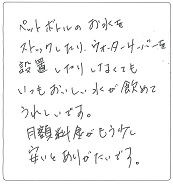 ペットボトルのお水を
ストックしたり、ウォーターサーバーを
設置したりしなくても
いつもおいしい水が飲めて
うれしいです。
月額料金がもう少し
安いとありがたいです。